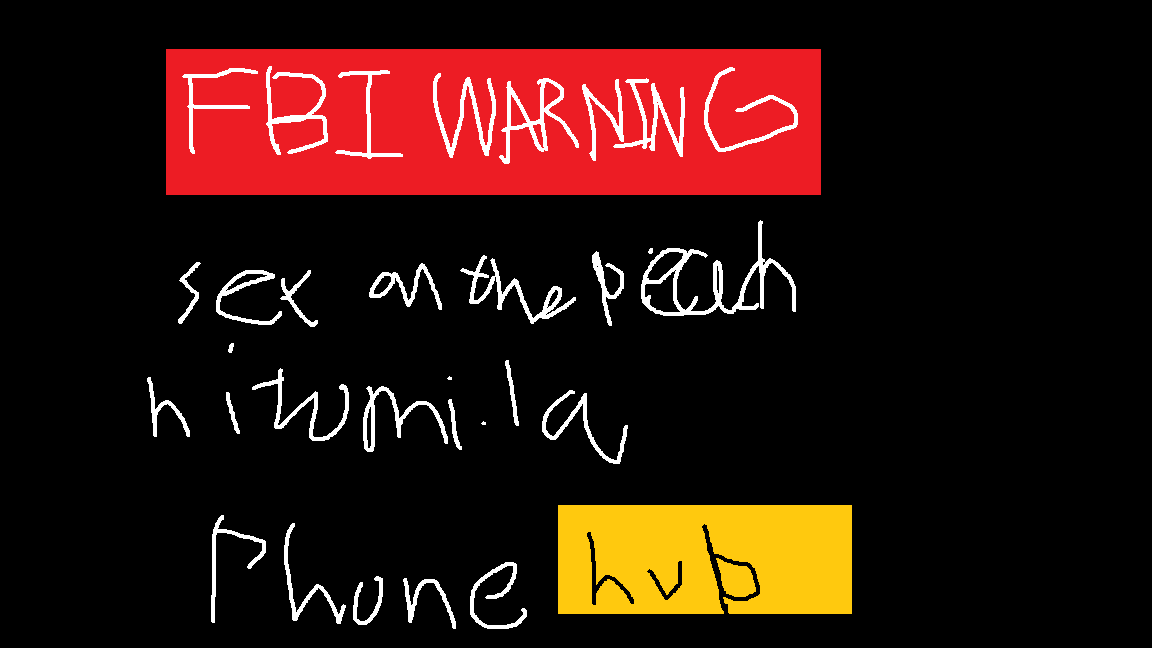 FBI WARNING
sex on the peach
hitomi.la
Phone hub